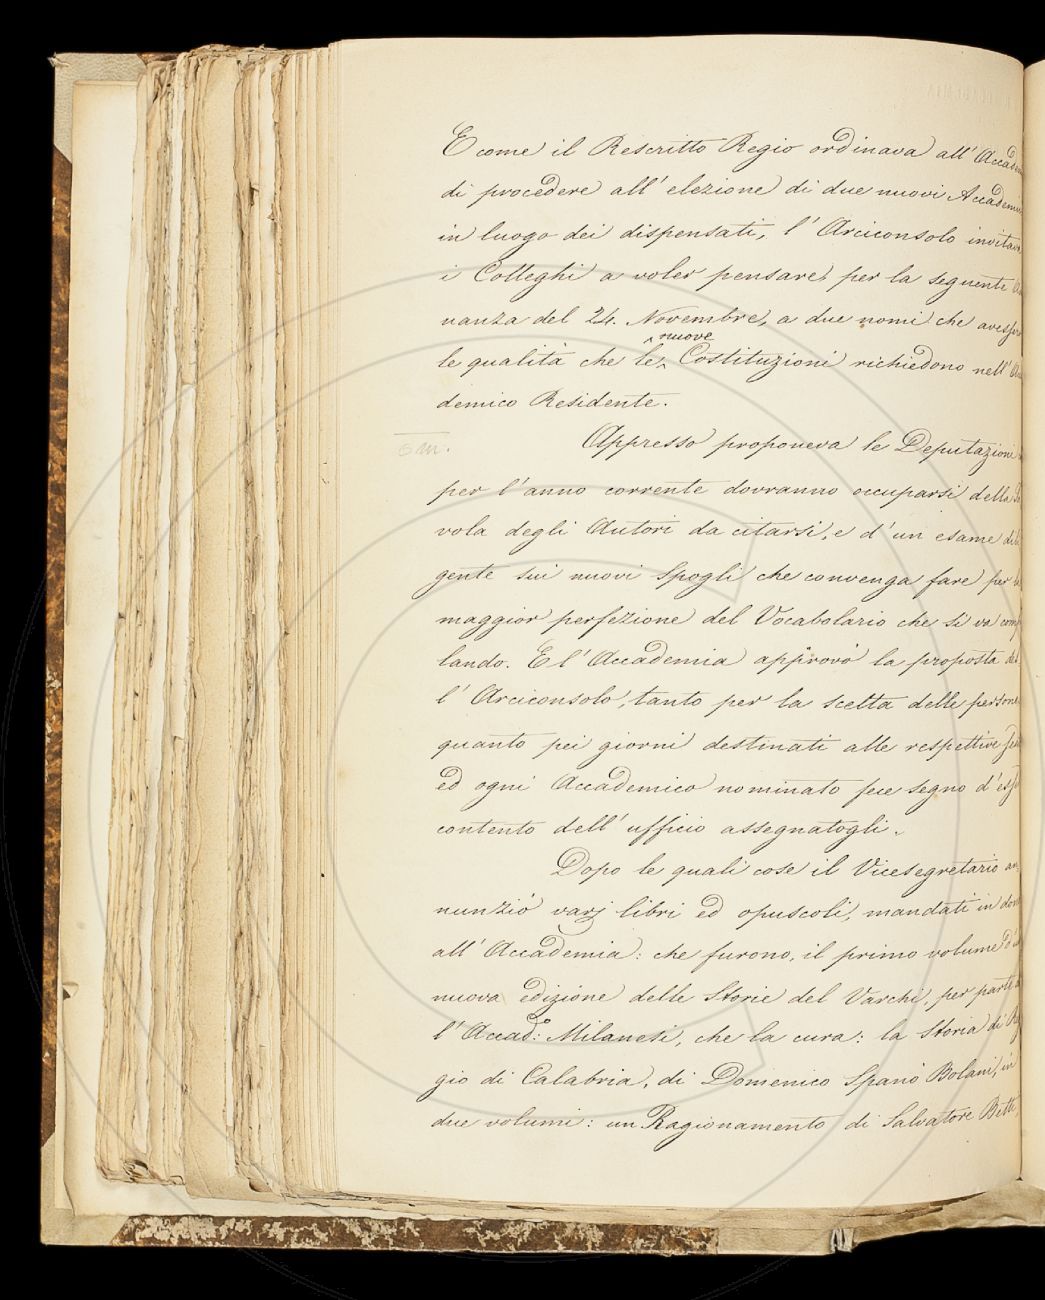 E come il Rescritto Regio ordinava all' Accadem
di procedere all' elezione di due nuovi Accademi
in luogo dei dispensati, l' Arciconsolo invitava
i Colleghi a voler pensare, per la seguente A
nanza del 24. Novembre, a due nomi che avesser
nuove
le qualità che le Costituzioni richiedono nell' Acc
demico Residente.
Appresso proponeva le Deputazioni
per l' anno corrente dovranno occuparsi della Ta
vola degli Autori da citarsi, e d' un esame dili
gente sui nuovi Spogli che convenga fare per la
maggior perfezione del Vocabolario che si va comp
lando. E l' Accademia approvò la proposta del
l' Arciconsolo, tanto per la scelta delle persone
quanto pei giorni destinati alle respettive
ed ogni Accademico nominato fece segno d' esser
contento dell' ufficio assegnatogli.
Dopo le quali cose il Vicesegretario an
nunziò varj libri ed opuscoli, mandati in dono
all' Accademia: che furono, il primo volume d'
nuova edizione delle Storie del Varchi, per parte
l' Accad: Milanesi, che la cura: la Storia di Reg
gio di Calabria, di Domenico Spanò Bolani, in
due volumi: un Ragionamento di Salvatore Betti